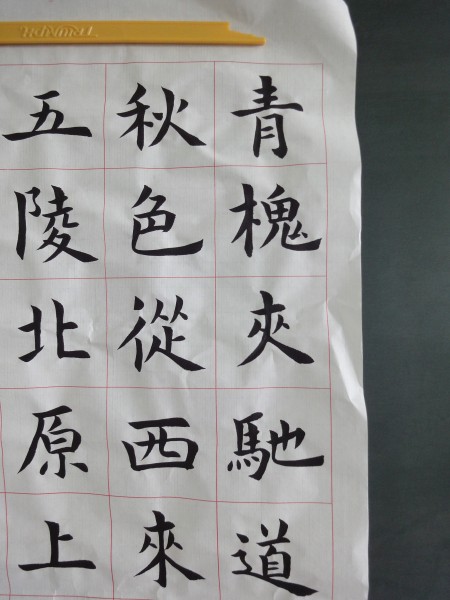 青槐夾馳道
秋色從西來
五陵北原上